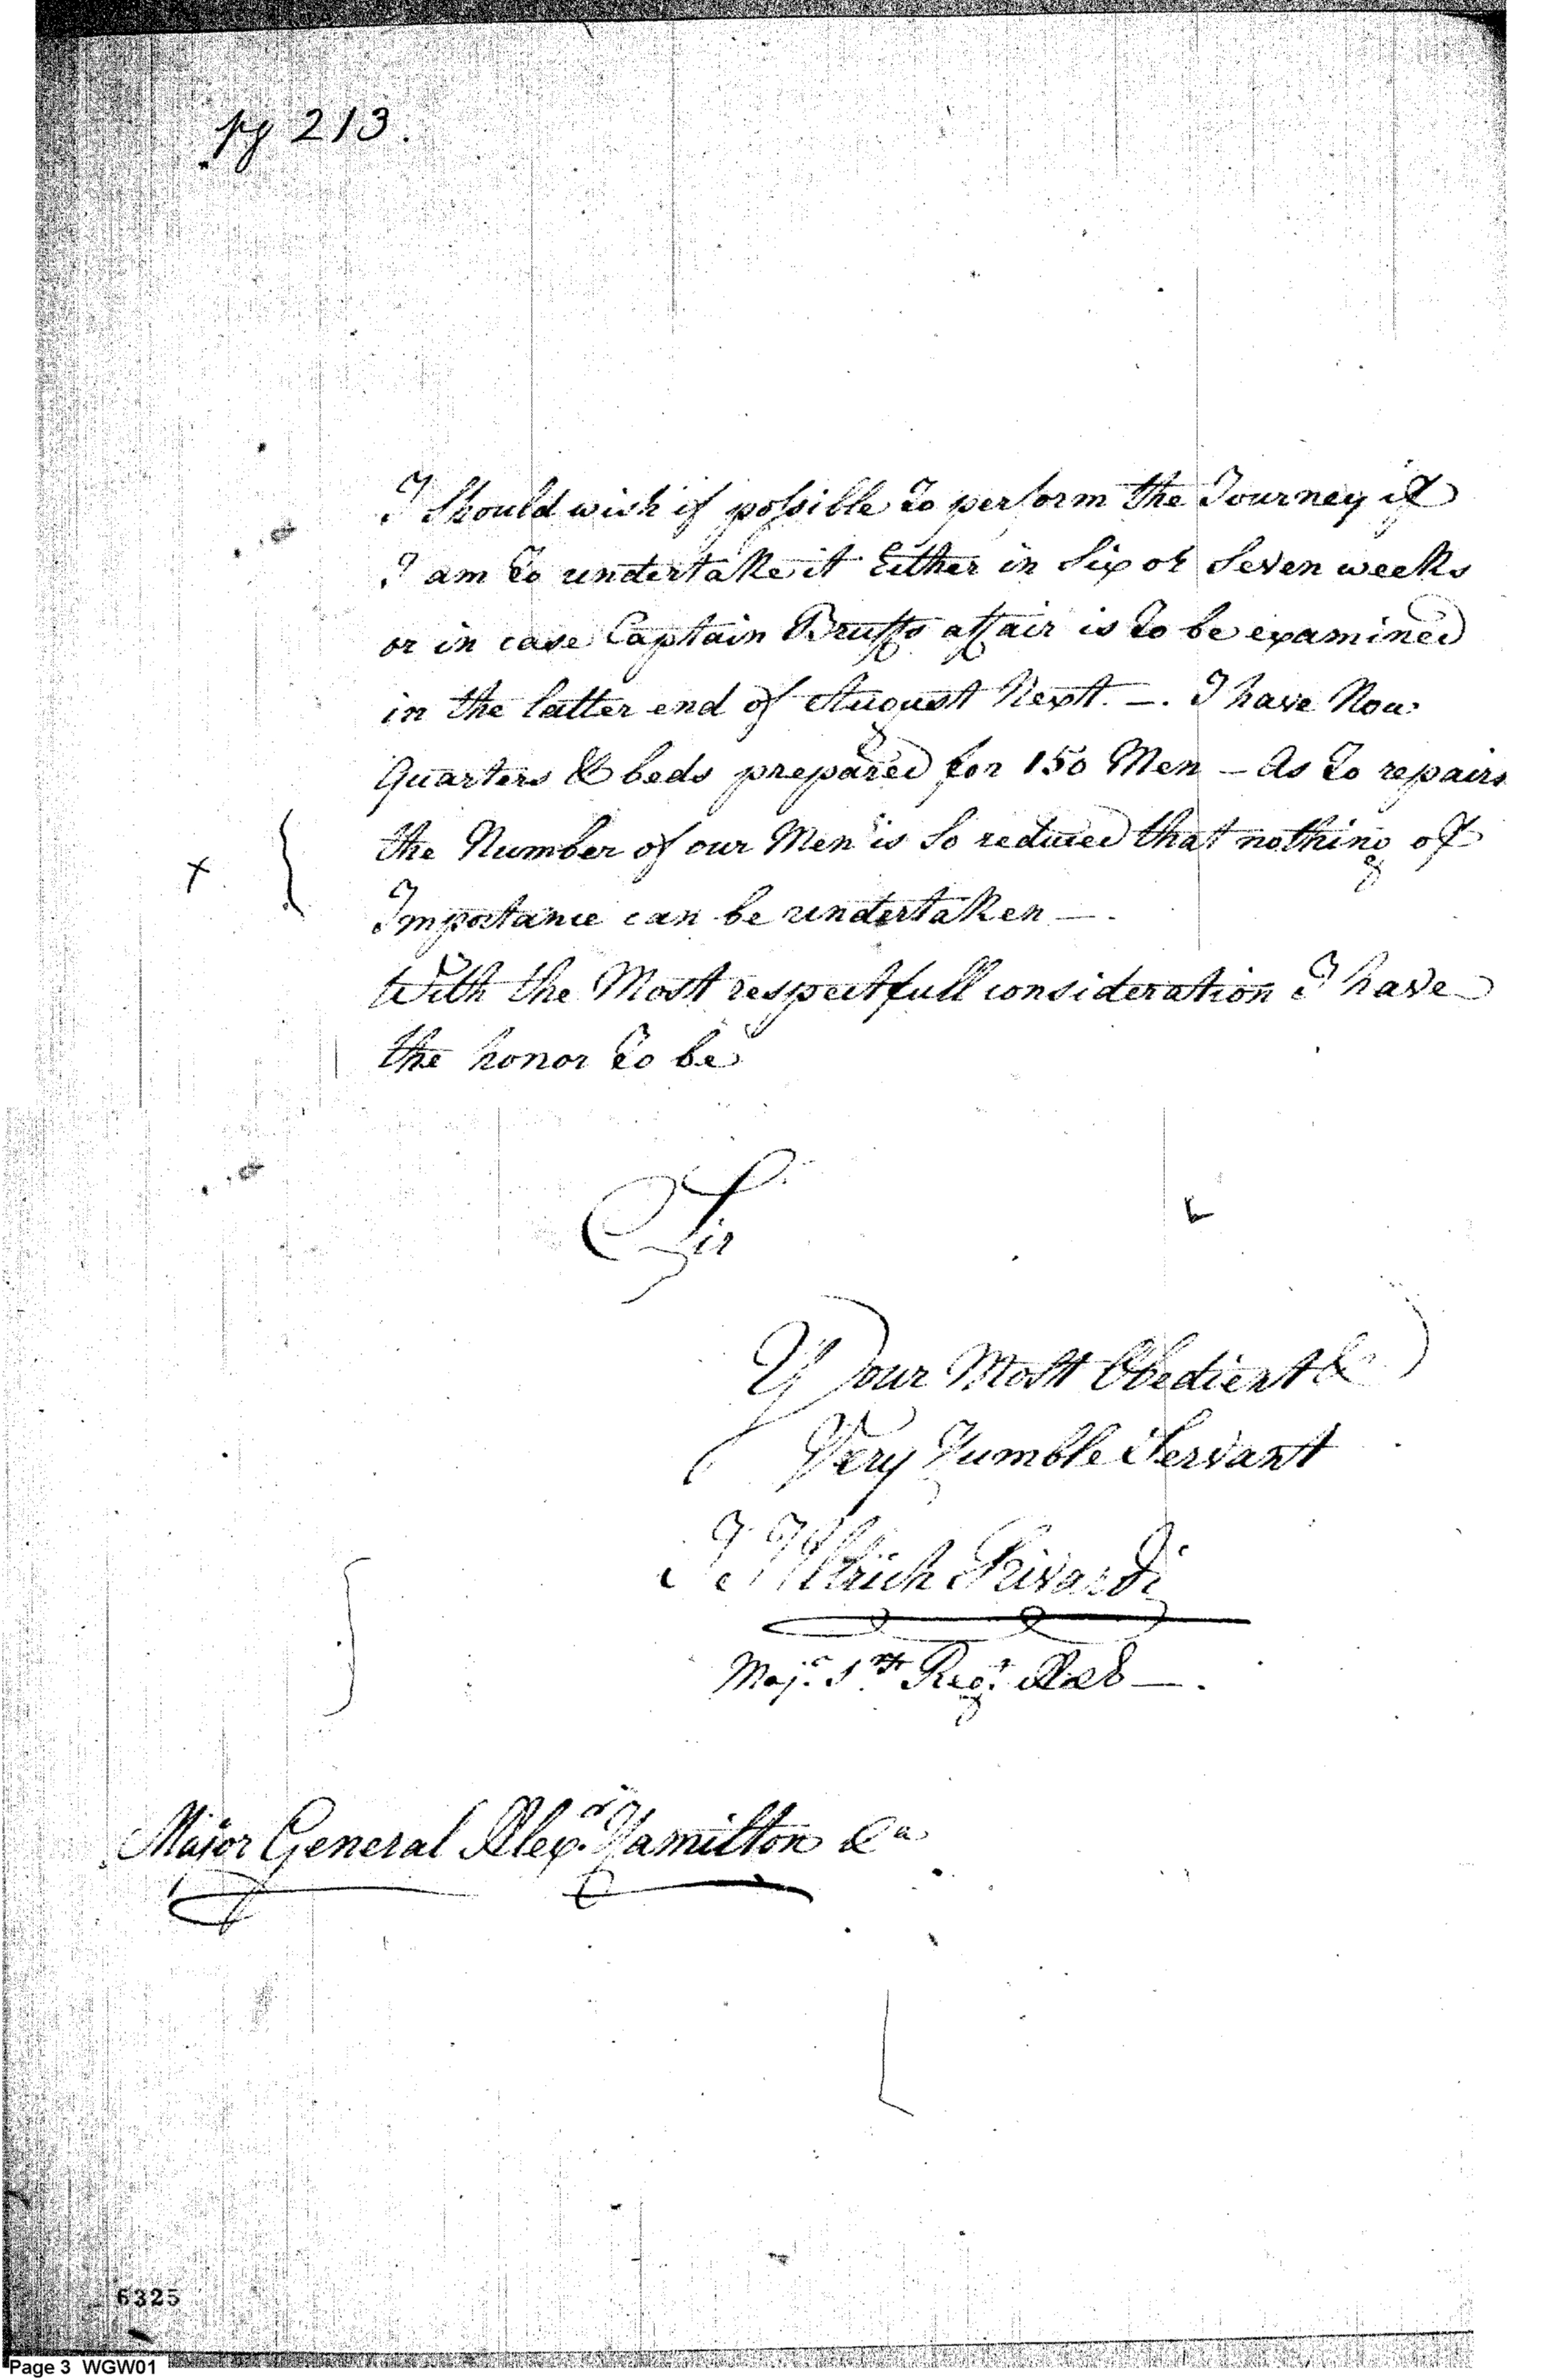 pg 213.
I Should wish if possible to perform the Journey if
I am to undertake it Either in Six or Seven weeks
or in case Captain Bruffs affair is to be examined
in the latter end of August Next. —. I have Now
Quarters & beds prepared for 150 Men — As to repairs
the Number of our Men is So reduced that nothing of
x
Importance can be undertaken —.
With the Most respectfull consideration I have
the honor to be
Sir
Your Most Obedient &
Very Humble Servant
J J Ulrich Rivardi
Majr. 1st Regt. A&E —.
Major General Alexr. Hamilton &a
6325
Page 3 WGW01